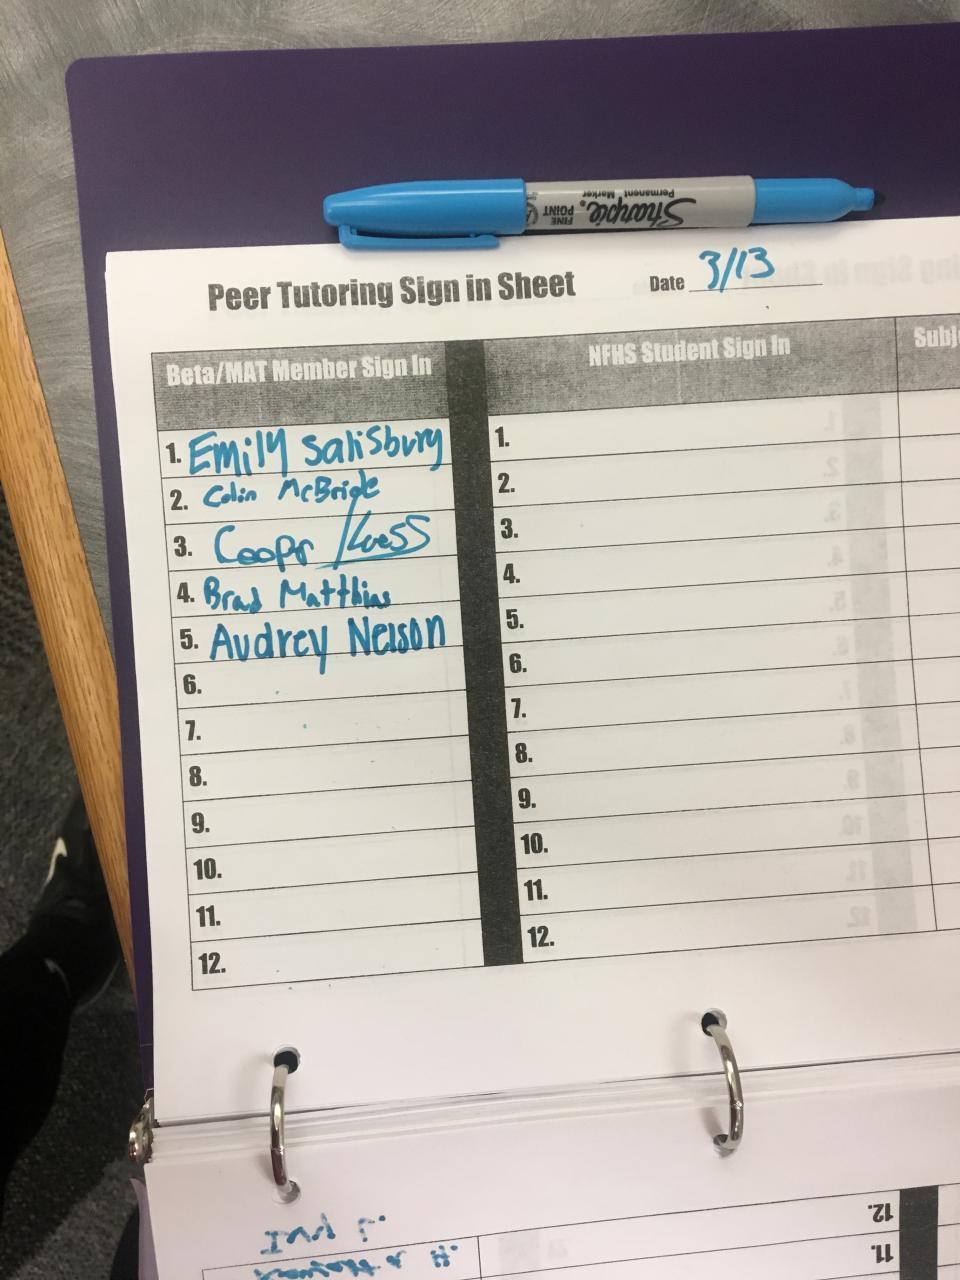 Sharpie®
FINE POINT
Permanent Marker
Peer Tutoring Sign in Sheet Date 3/13
Beta/MAT Member Sign In NFHS Student Sign In Subj
1. Emily Salisbury 1.
2. Colin McBride 2.
3. Coopr 3.
4. Brad Matthias 4.
5. Audrey Nelson 5.
6. 6.
7. 7.
8. 8.
9. 9.
10. 10.
11. 11.
12. 12.
12.
11.